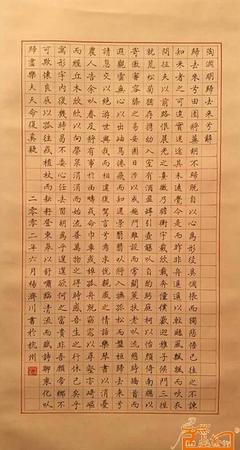 陶淵明歸去來兮辭
歸去來兮田園將蕪胡不歸既自以心為形役奚惆悵而獨悲悟已往之不諫
知來者之可追實迷途其未遠覺今是而昨非舟遙遙以輕颺風飄飄而吹衣
問征夫以前路恨晨光之熹微乃瞻衡宇載欣載奔僮僕歡迎稚子候門三徑
就荒松菊猶存攜幼入室有酒盈罇引壺觴以自酌眄庭柯以怡顏倚南窗以
寄傲審容膝之易安園日涉以成趣門雖設而常關策扶老以流憩時矯首而
遐觀雲無心以出岫鳥倦飛而知還景翳翳以將入撫孤松而盤桓歸去來兮
請息交以絕遊世與我而相違復駕言兮焉求悅親戚之情話樂琴書以消憂
農人告余以春及將有事於西疇或命巾車或棹孤舟既窈窕以尋壑亦崎嶇
而經丘木欣欣以向榮泉涓涓而始流善萬物之得時感吾生之行休已矣乎
寓形宇內復幾時曷不委心任去留胡為乎遑遑欲何之富貴非吾願帝鄉不
可期懷良辰以孤往或植杖而耘耔登東皋以舒嘯臨清流而賦詩聊乘化以
歸盡樂夫天命復奚疑 二零零二年六月楊濟川書於杭州